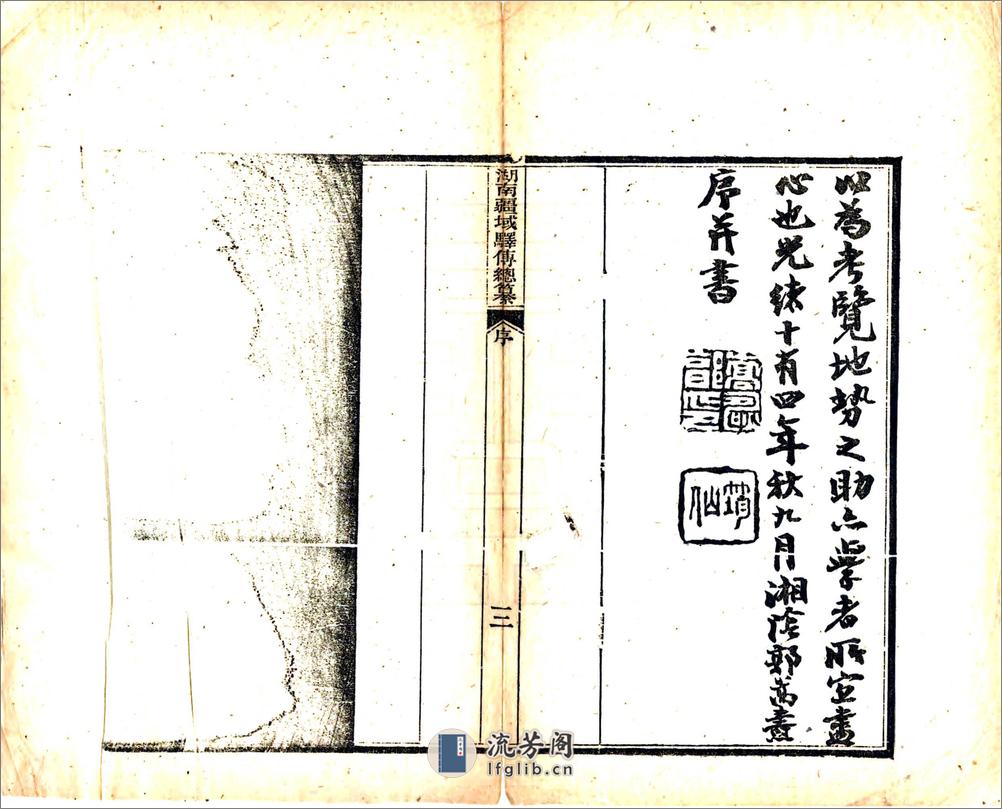 以為考覽地勢之助亦學者所宜盡
心也光緒十有四年秋九月湘陰郭嵩燾
序并書
筠仙
湖南疆域驛傳總纂
序
三
流芳阁
lfglib.cn